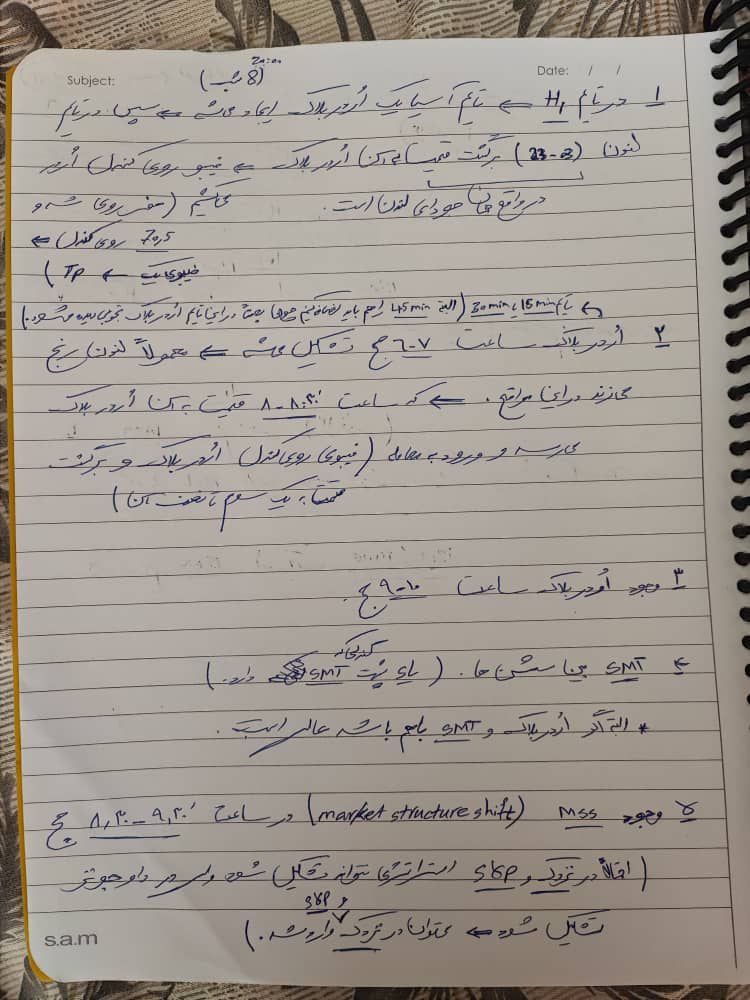 Subject:
Date: / /
20:00
(8 شب)
۱ در تایم H1 ← تایم آسیا یک اُردر بلاک ایجاد میشه ← سپس در تایم
لندن (23-3) برگشت قیمت به این اُردر بلاک ← فیبو روی کندل اُردر
در واقع همان جودای لندن است. میکشیم (صفر روی شه و
70.5 روی کندل ←
فیبوی یک ← TP)
تایم 15min یا 30min (البته 45min را هم باید اضافه کنیم چون بعضاً در این تایم اُردر بلاک تحویل داده میشود.)
۲ اُردر بلاک ساعت ۷-۶ صبح تشکیل میشه ← معمولاً لندن رنج
میزند در این مواقع. ← که ساعت ۸:۳۰ - ۸ قیمت به این اُردر بلاک
میرسه و ورود به معامله (فیبوی روی کندل اُردر بلاک و برگشت
قیمت به یک سوم تا نصف آن)
۳ وجود اُوردر بلاک ساعت ۱۰-۹ صبح.
۴ SMT بین سشن ها. ( پشت SMT دارد.)
* البته اگر اُردر بلاک و SMT باهم باشه عالی است.
۵ وجود MSS (market structure shift) در ساعت ۹:۳۰ - ۸:۳۰ صبح
(مثلاً در نزدک و S&P استراتژی نتواند تشکیل شود ولی در داوجونز
تشکیل شود ← میتوان در نزدک و S&P وارد شد.)
s.a.m